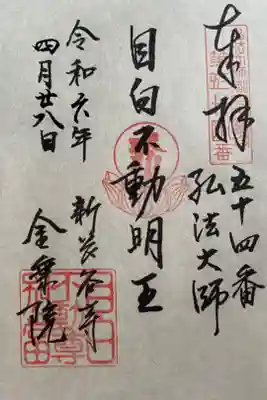 奉拝
五十四番
弘法大師
目白不動明王
令和六年
四月廿八日
新長谷寺
金乗院